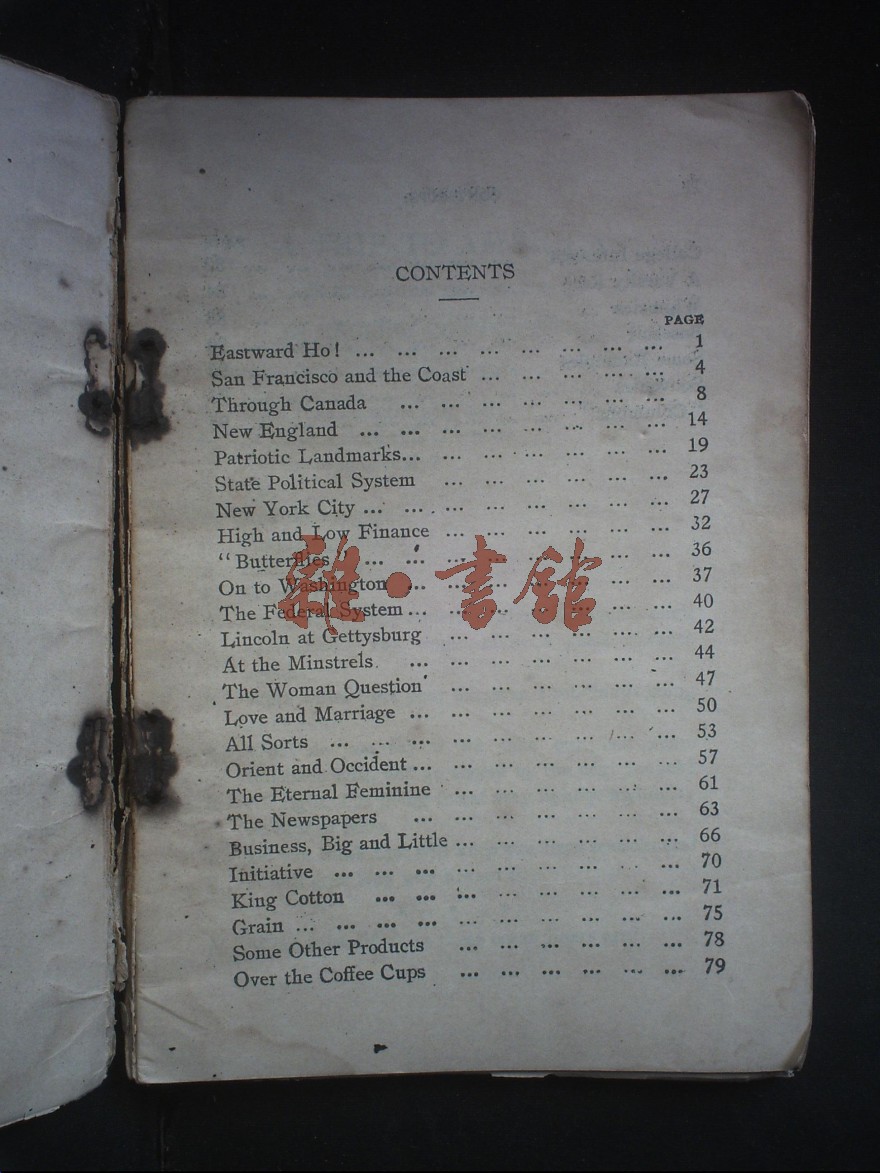 CONTENTS
PAGE
Eastward Ho! ... ... ... ... ... ... ... ... 1
San Francisco and the Coast ... ... ... ... ... 4
Through Canada ... ... ... ... ... ... ... 8
New England ... ... ... ... ... ... ... ... 14
Patriotic Landmarks... ... ... ... ... ... ... 19
State Political System ... ... ... ... ... ... 23
New York City ... ... ... ... ... ... ... ... 27
High and Low Finance ... ... ... ... ... ... 32
"Butterflies" ... ... ... ... ... ... ... ... 36
On to Washington ... ... ... ... ... ... ... 37
The Federal System ... ... ... ... ... ... ... 40
Lincoln at Gettysburg ... ... ... ... ... ... 42
At the Minstrels ... ... ... ... ... ... ... 44
The Woman Question ... ... ... ... ... ... 47
Love and Marriage ... ... ... ... ... ... ... 50
All Sorts ... ... ... ... ... ... ... ... ... 53
Orient and Occident ... ... ... ... ... ... ... 57
The Eternal Feminine ... ... ... ... ... ... 61
The Newspapers ... ... ... ... ... ... ... 63
Business, Big and Little ... ... ... ... ... ... 66
Initiative ... ... ... ... ... ... ... ... ... 70
King Cotton ... ... ... ... ... ... ... ... 71
Grain ... ... ... ... ... ... ... ... ... ... 75
Some Other Products ... ... ... ... ... ... 78
Over the Coffee Cups ... ... ... ... ... ... 79
雜·書館